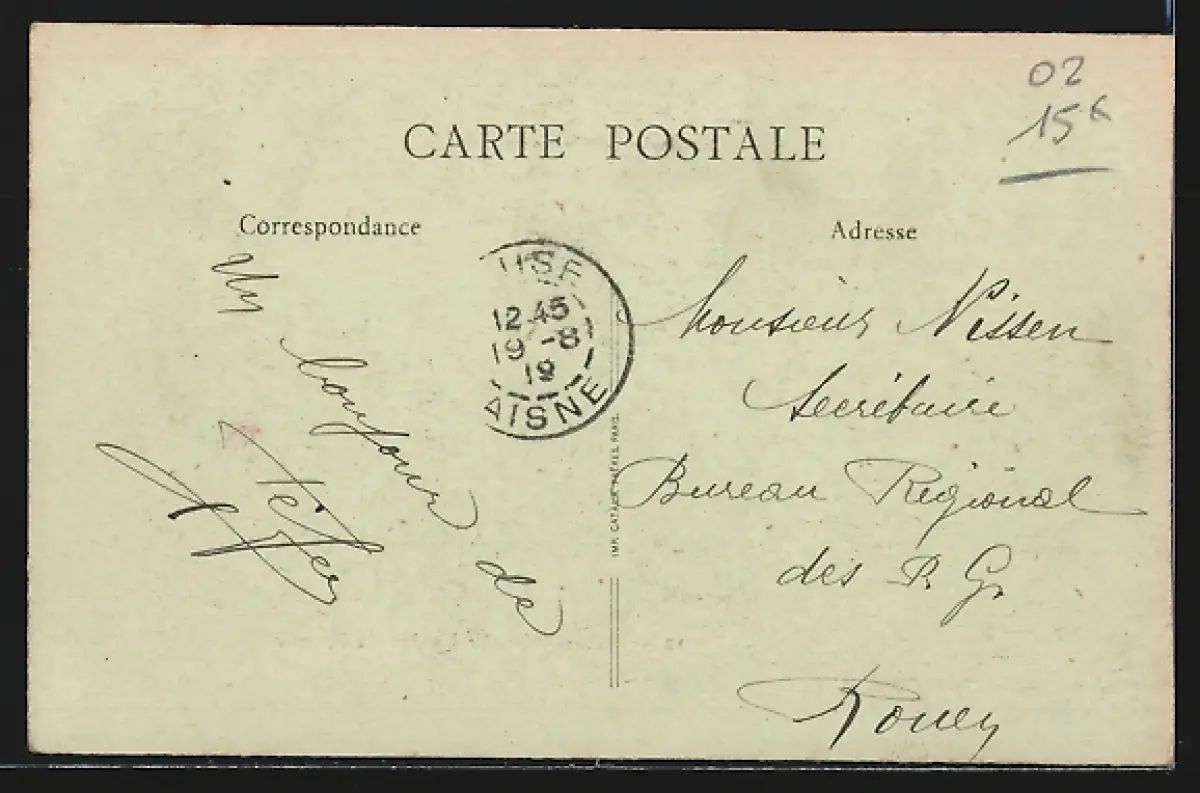 02
15€
CARTE POSTALE
Correspondance
Adresse
Un
bonjour
de
12 45
19 -8
19
AISNE
Monsieur Nissen
Secrétaire
Bureau Régional
des P. G.
Rouen
IMP. CATALA FRÈRES, PARIS.